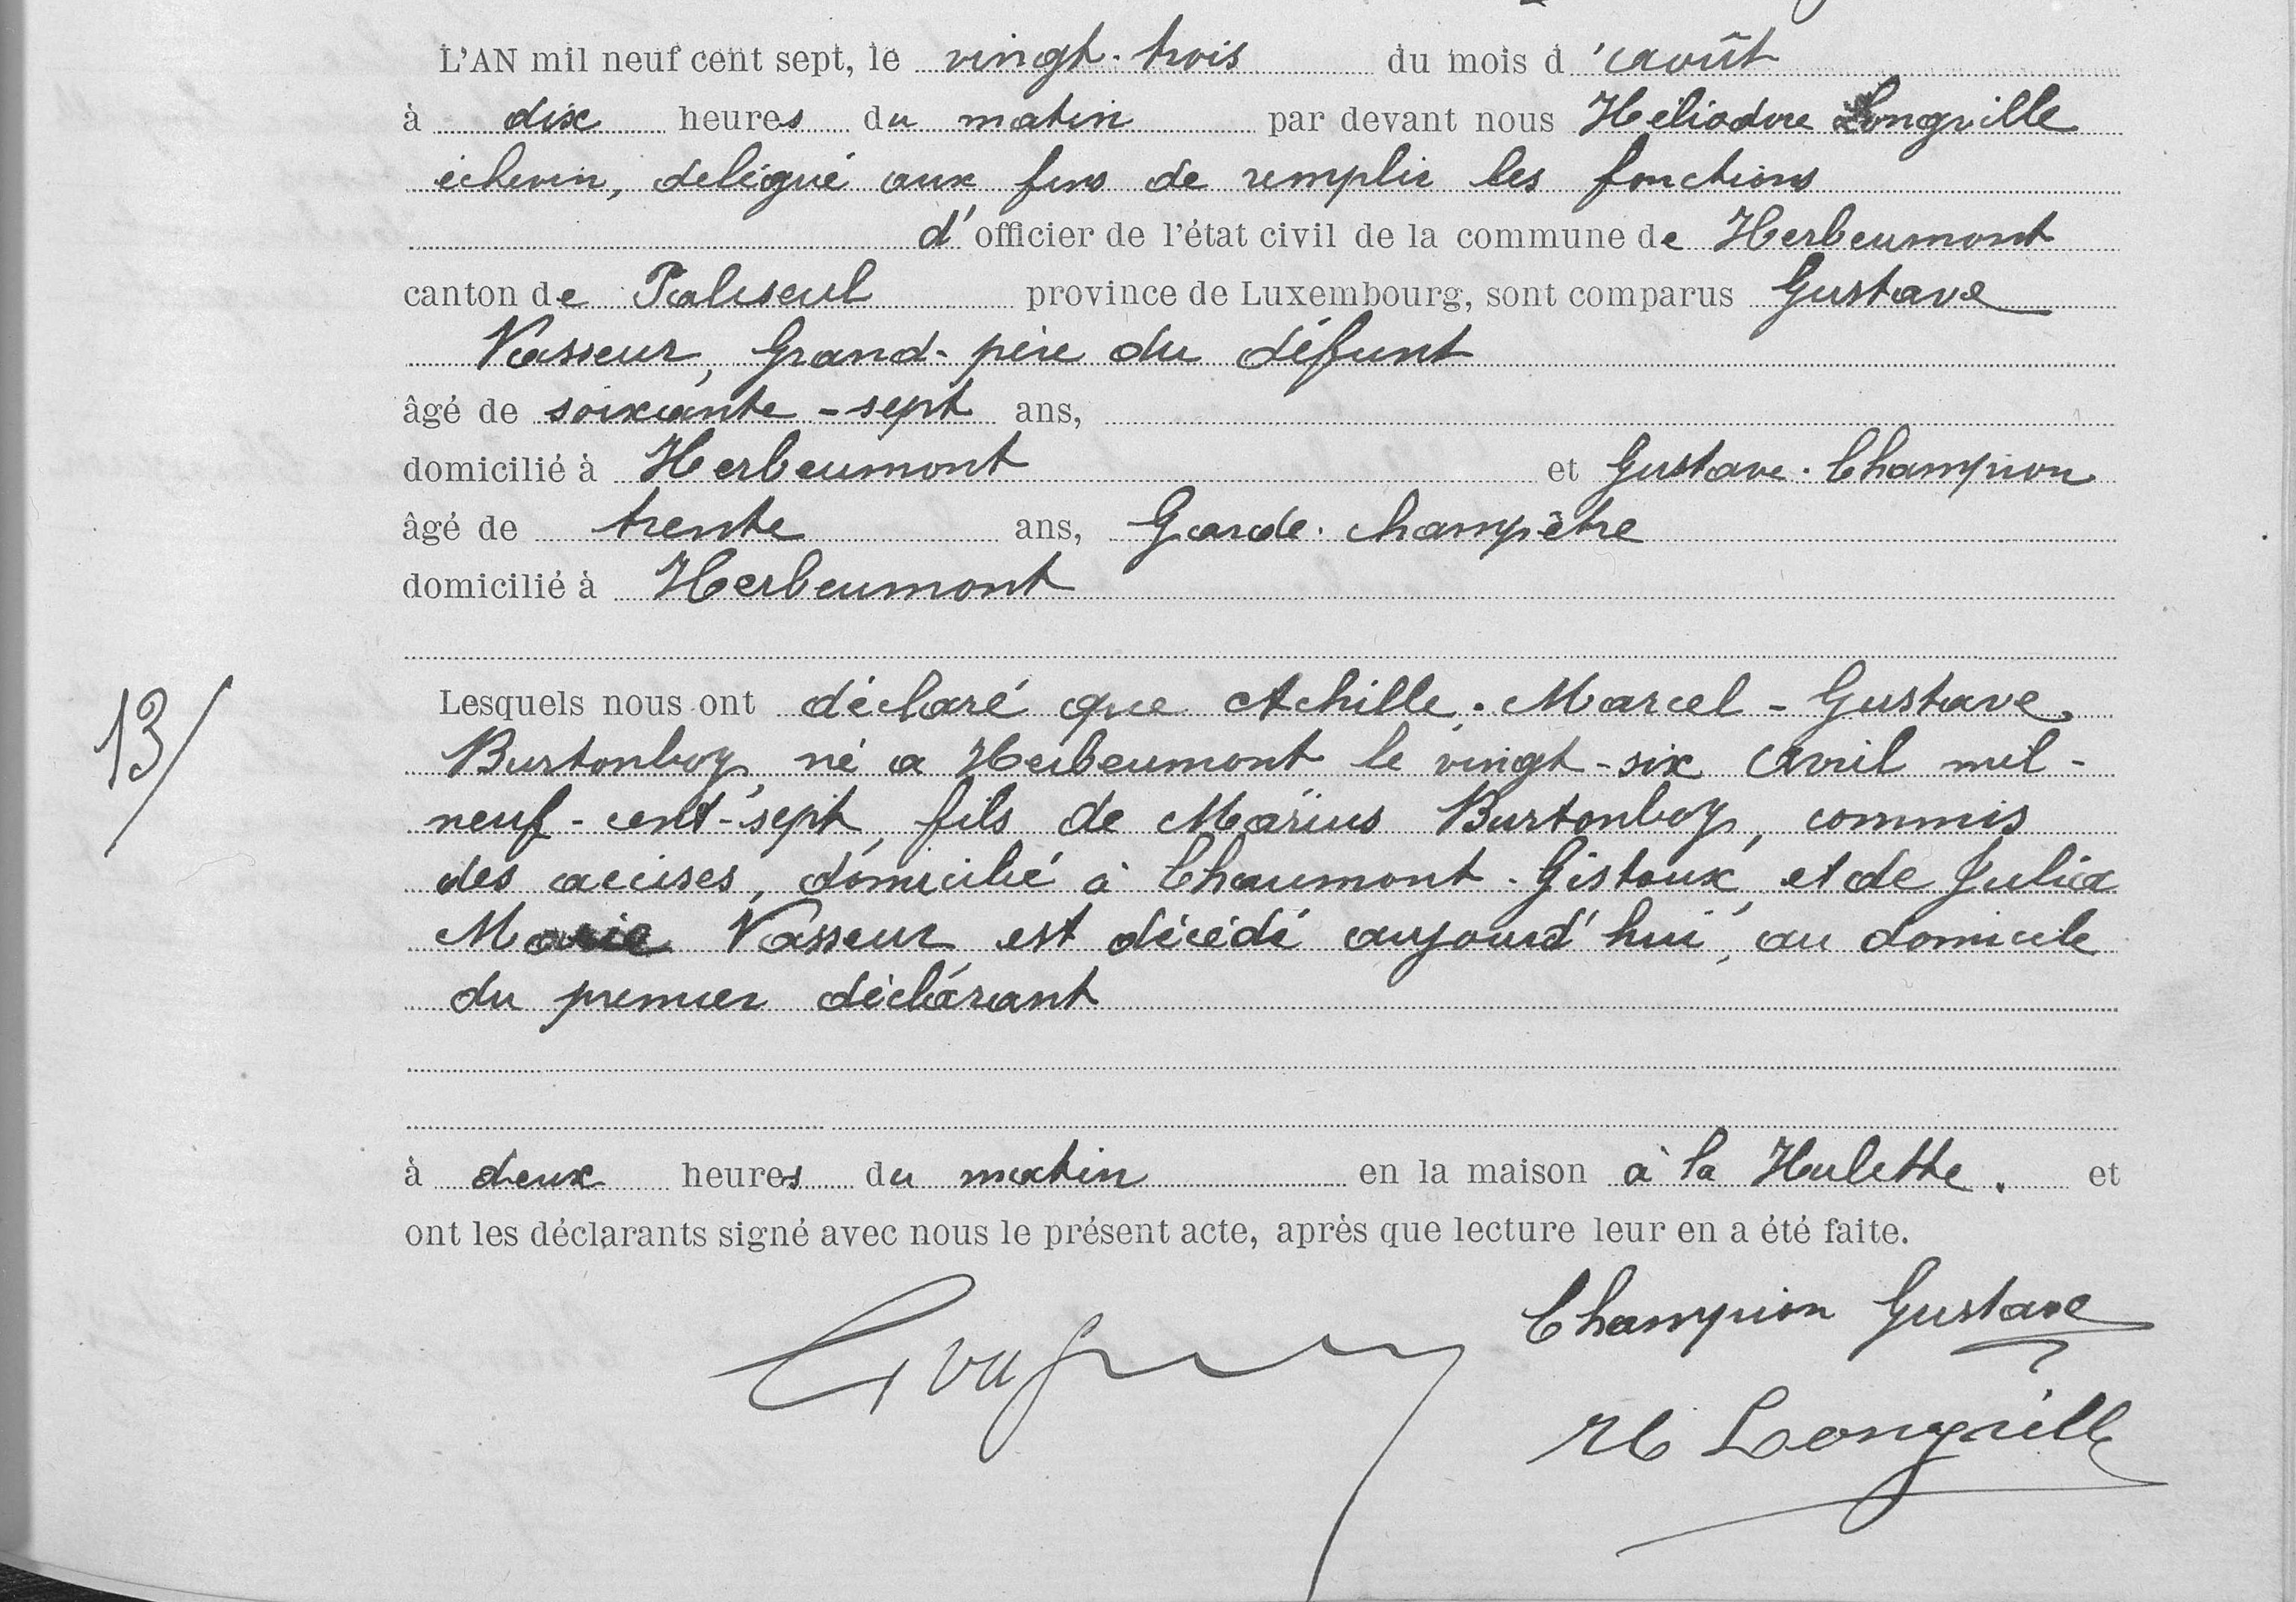 L'AN mil neuf cent sept, le vingt-trois du mois d'août
à dix heures du matin par devant nous Héliodore Longville
échevin, délégué aux fins de remplir les fonctions
d'officier de l'état civil de la commune de Herbeumont
canton de Paliseul province de Luxembourg, sont comparus Gustave
Vasseur, Grand-père du défunt
âgé de soixante-sept ans,
domicilié à Herbeumont et Gustave Champion
âgé de trente ans, Garde-champêtre
domicilié à Herbeumont
13/
Lesquels nous ont déclaré que Achille-Marcel-Gustave
Burtonboy, né a Herbeumont le vingt-six Avril mil-
neuf-cent-sept, fils de Marius Burtonboy, commis
des accises, domicilié à Chaumont-Gistoux, et de Julia
Marie Vasseur est décédé aujourd'hui, au domicile
du premier déclarant
à deux heures du matin en la maison à la Hulette. et
ont les déclarants signé avec nous le présent acte, après que lecture leur en a été faite.
Champion Gustave
H Longville